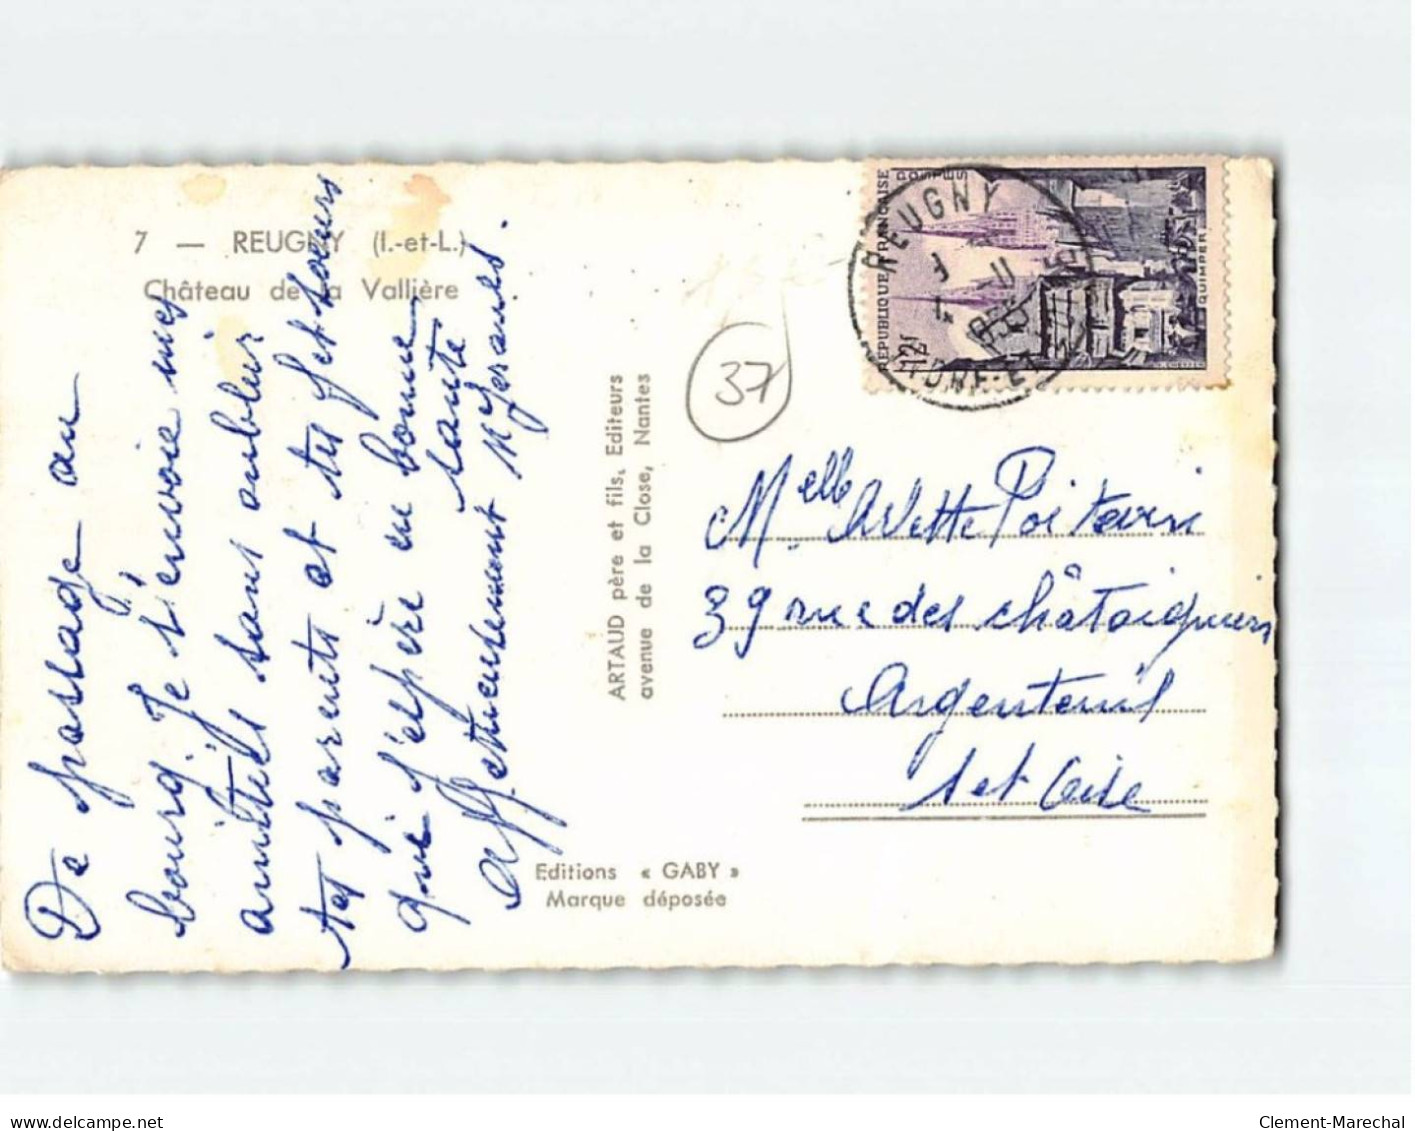 7 — REUGNY (I.-et-L.)
Château de la Vallière
De passage au
bourg, Je t'envoie mes
amitiés sans oublier
tes parents et tes f et soeurs
que j'espère en bonne
santé
affectueusement
ARTAUD père et fils, Editeurs
avenue de la Close, Nantes
Editions « GABY »
Marque déposée
37
REUGNY
INDRE-ET-L
RÉPUBLIQUE FRANÇAISE
POSTES
12F
QUIMPER
Melle Arlette Poitevin
39 rue des châtaigniers
Argenteuil
S et Oise
www.delcampe.net
Clement-Marechal